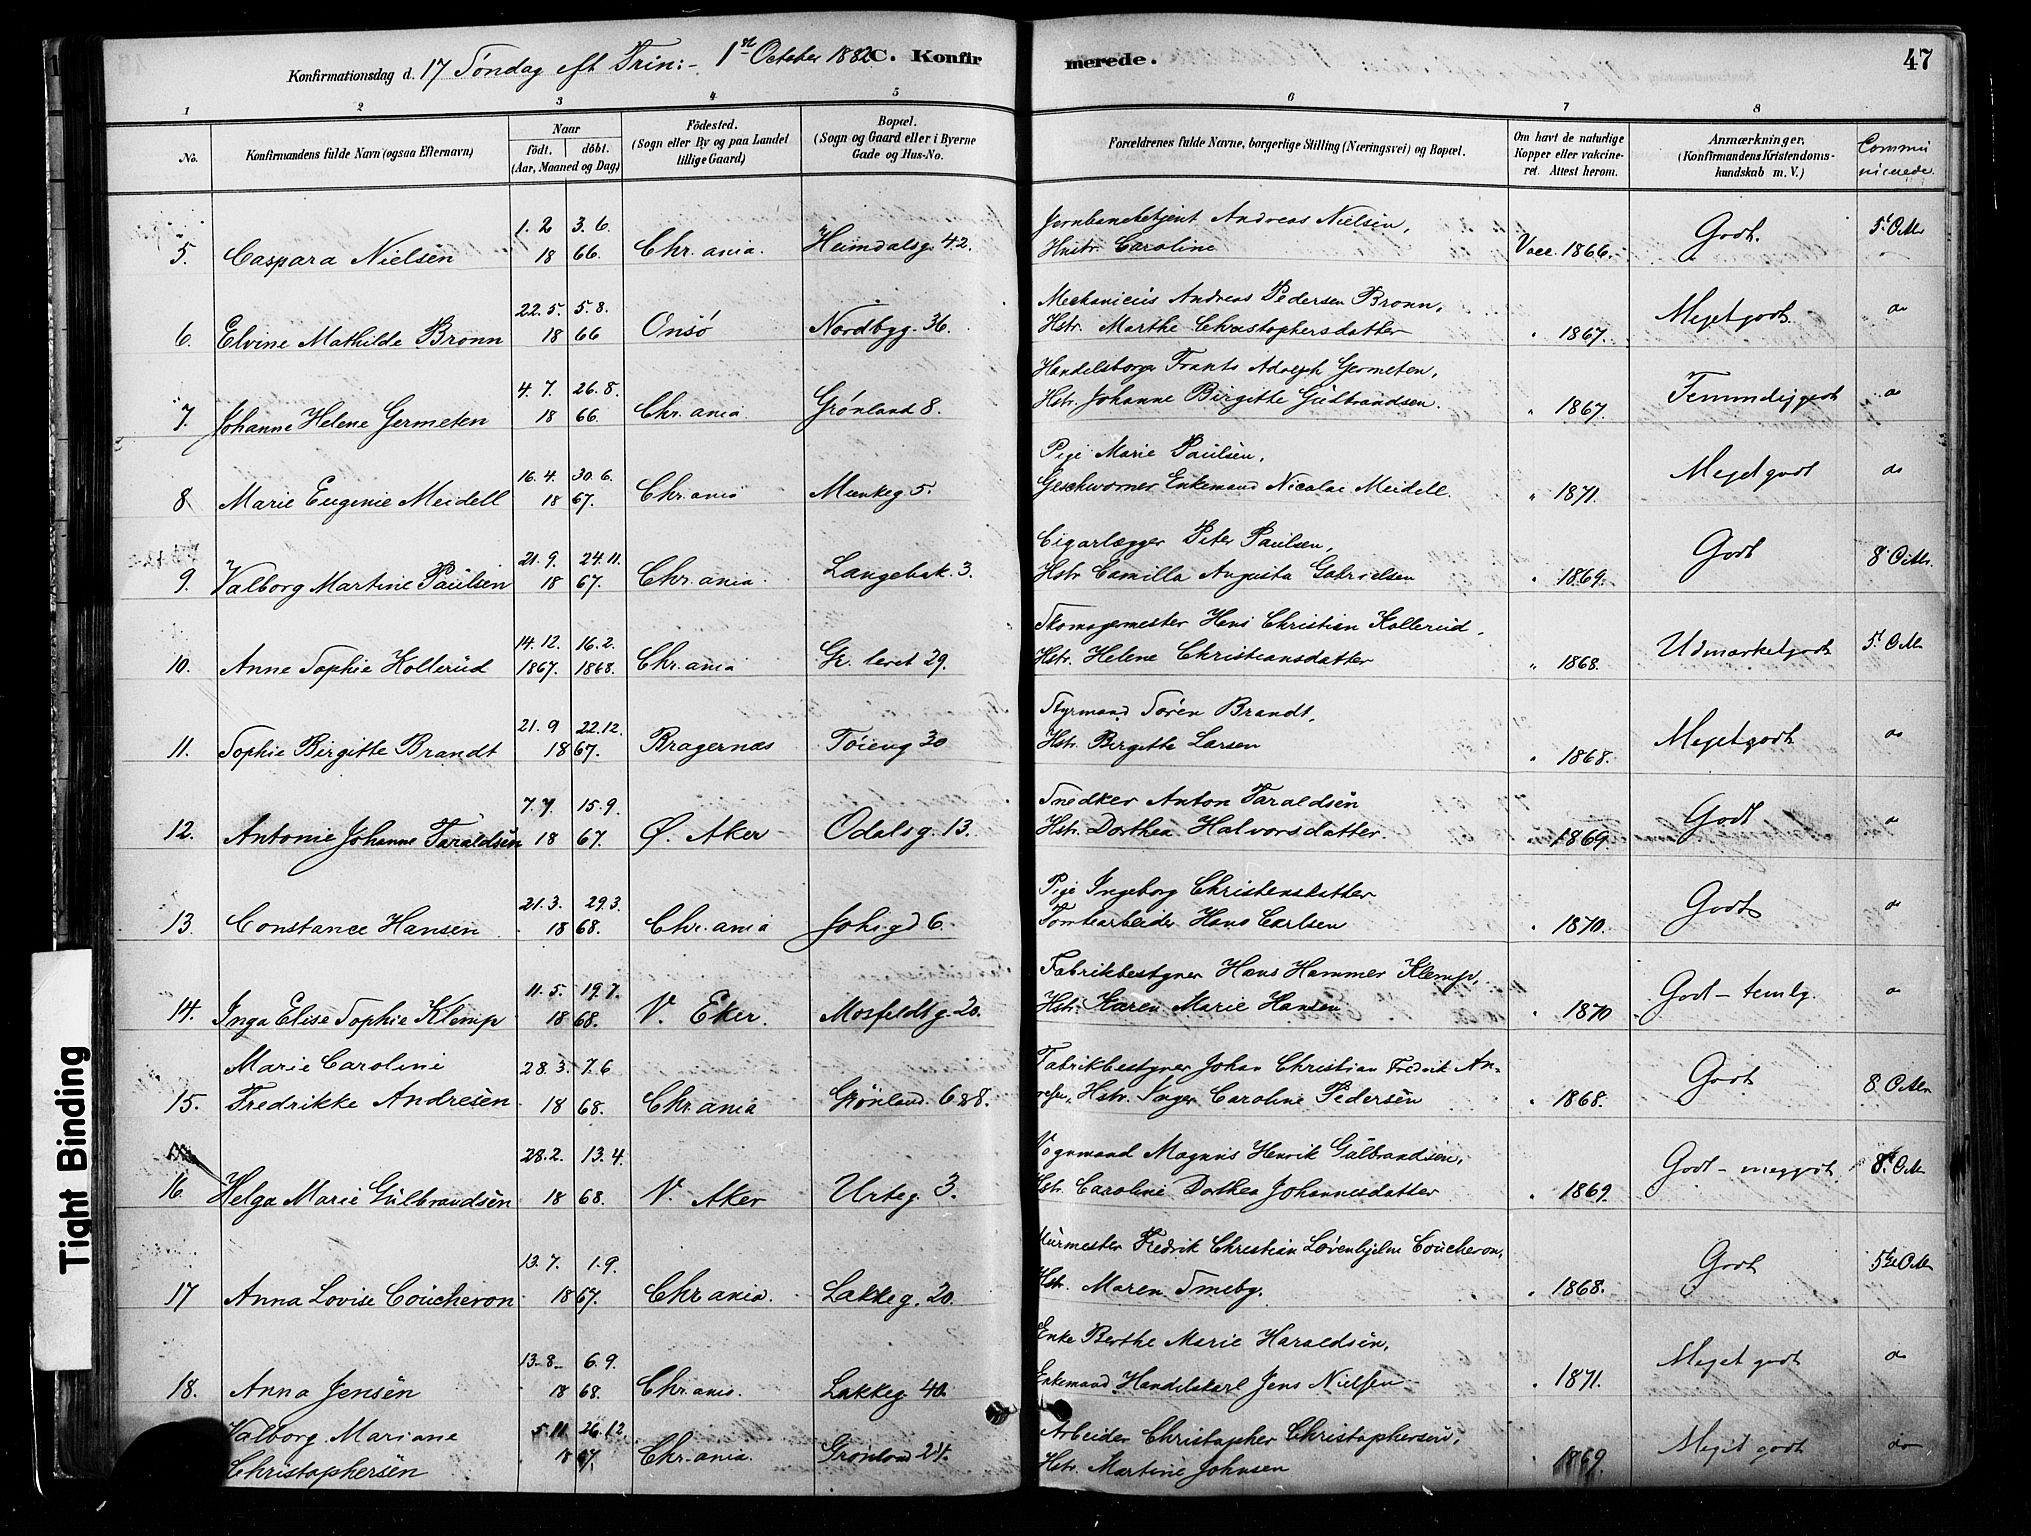 Konfirmationsdag d. 17 Söndag eft Trin:- 1st October 1882 C. Konfirmerede. 47
1 2 3 4 5 6 7 8
No. Konfirmandens fulde Navn (ogsaa Efternavn) Naar födt. döbt. (Aar, Maaned og Dag) Födested. (Sogn eller By og paa Landet tillige Gaard) Bopæl. (Sogn og Gaard eller i Byerne Gade og Hus-No. Forældrenes fulde Navne, borgerlige Stilling (Næringsvei) og Bopæl. Om havt de naturlige Kopper eller vakcineret. Attest herom. Anmærkninger. (Konfirmandens Kristendomskundskab m. V.) Communicerede.
5. Caspara Nielsen 1. 2 1866 3. 6. Chr.ania. Heimdalsg. 42. Jernbanebetjent Andreas Nielsen, Hustr. Caroline Vacc. 1866. Godt. 5. Octbr
6. Elvine Mathilde Bronn 22. 5. 5. 8. 1866 Onsö Nordbyg. 36. Mechanicus Andreas Pedersen Bronn, Hstr. Marthe Christophersdatter " 1867. Meget godt. do
7. Johanne Helene Germeten 4. 7. 26. 8. 1866. Chr.ania Grønland 8. Handelsborger Frants Adolph Germeten, Hstr. Johanne Birgitte Gulbrandsen. " 1867. Temmelig godt do
8 Marie Eugenie Meidell 16. 4. 30. 6. 1867. Chr.ania Munkeg. 5. Pige Marie Paulsen, Geschworner Enkemand Nicolai Meidell. " 1871. Meget godt do
9. Valborg Martine Paulsen 21. 9. 24. 11. 1867. Chr.ania. Langebak. 3. Cigarlægger Peter Paulsen, Hstr Camilla Augusta Gabrielsen " 1869. Godt 8 Octbr.
10. Anne Sophie Kollerud 14. 12. 1867. 16. 2. 1868. Chr.ania Gr. leret 29. Skomagermester Hans Christian Kollerud, Hstr. Helene Christiansdatter " 1868. Udmærket godt 5t Octbr
11. Sophie Birgitte Brandt 21. 9 22. 12. 1867. Bragernæs Töieng 30 Styrmand Sören Brandt, Hstr. Birgitte Larsen " 1868. Meget godt do
12. Antonie Johanne Taraldsen 7. 7. 15. 9. 1867. Ø. Aker Odalsg. 13. Snedker Anton Taraldsen Hstr. Dorthea Halvorsdatter. " 1869. Godt do
13. Constance Hansen 21. 3. 29. 3. 1868. Chr.ania Johs.gd 6. Pige Ingeborg Christensdatter Tomtearbeider Hans Carlsen " 1870. Godt do
14. Inga Elise Sophie Klemp 11. 5. 19. 7. 1868. V. Eker. Mosfeldtsg. 20. Fabrikbestyrer Hans Hammer Klemp, Hstr. Karen Marie Hansen " 1870 Godt - temlg. do
15. Marie Caroline Fredrikke Andresen 28. 3. 7. 6 1868. Chr.ania Grønland. 6 & 8. Fabrikbestyrer Johan Christian Fredrik Andresen, Hstr. Inger Caroline Pedersen " 1868. Godt 8. Octbr
16. Helga Marie Gulbrandsen 28. 2. 13. 4. 1868. V. Aker Urteg. 3. Vognmand Magnus Henrik Gulbrandsen, Hstr. Caroline Dorthea Johannesdatter " 1869. Godt - meggodt. 8. Octbr
17 Anna Lovise Coucheron 13. 7. 1. 9. 1867. Chr.ania. Lakkeg. 20. Murmester Fredrik Christian Løvenhjelm Coucheron, Hstr. Maren Smeby. " 1868. Godt 5te Octbr
18. Anna Jensen 13. 8 - 6. 9. 1868. Chr.ania. Lakkeg 40. Enke Berthe Marie Haraldsen, Enkemand Handelskarl Jens Nielsen " 1871. Meget godt do
Valborg Mariane Christophersen 5. 11 26. 12. 1867. Chr.ania. Grønland 24. Arbeider Christopher Christophersen, Hstr. Martine Johnsen " 1869. Meget godt do
Tight Binding